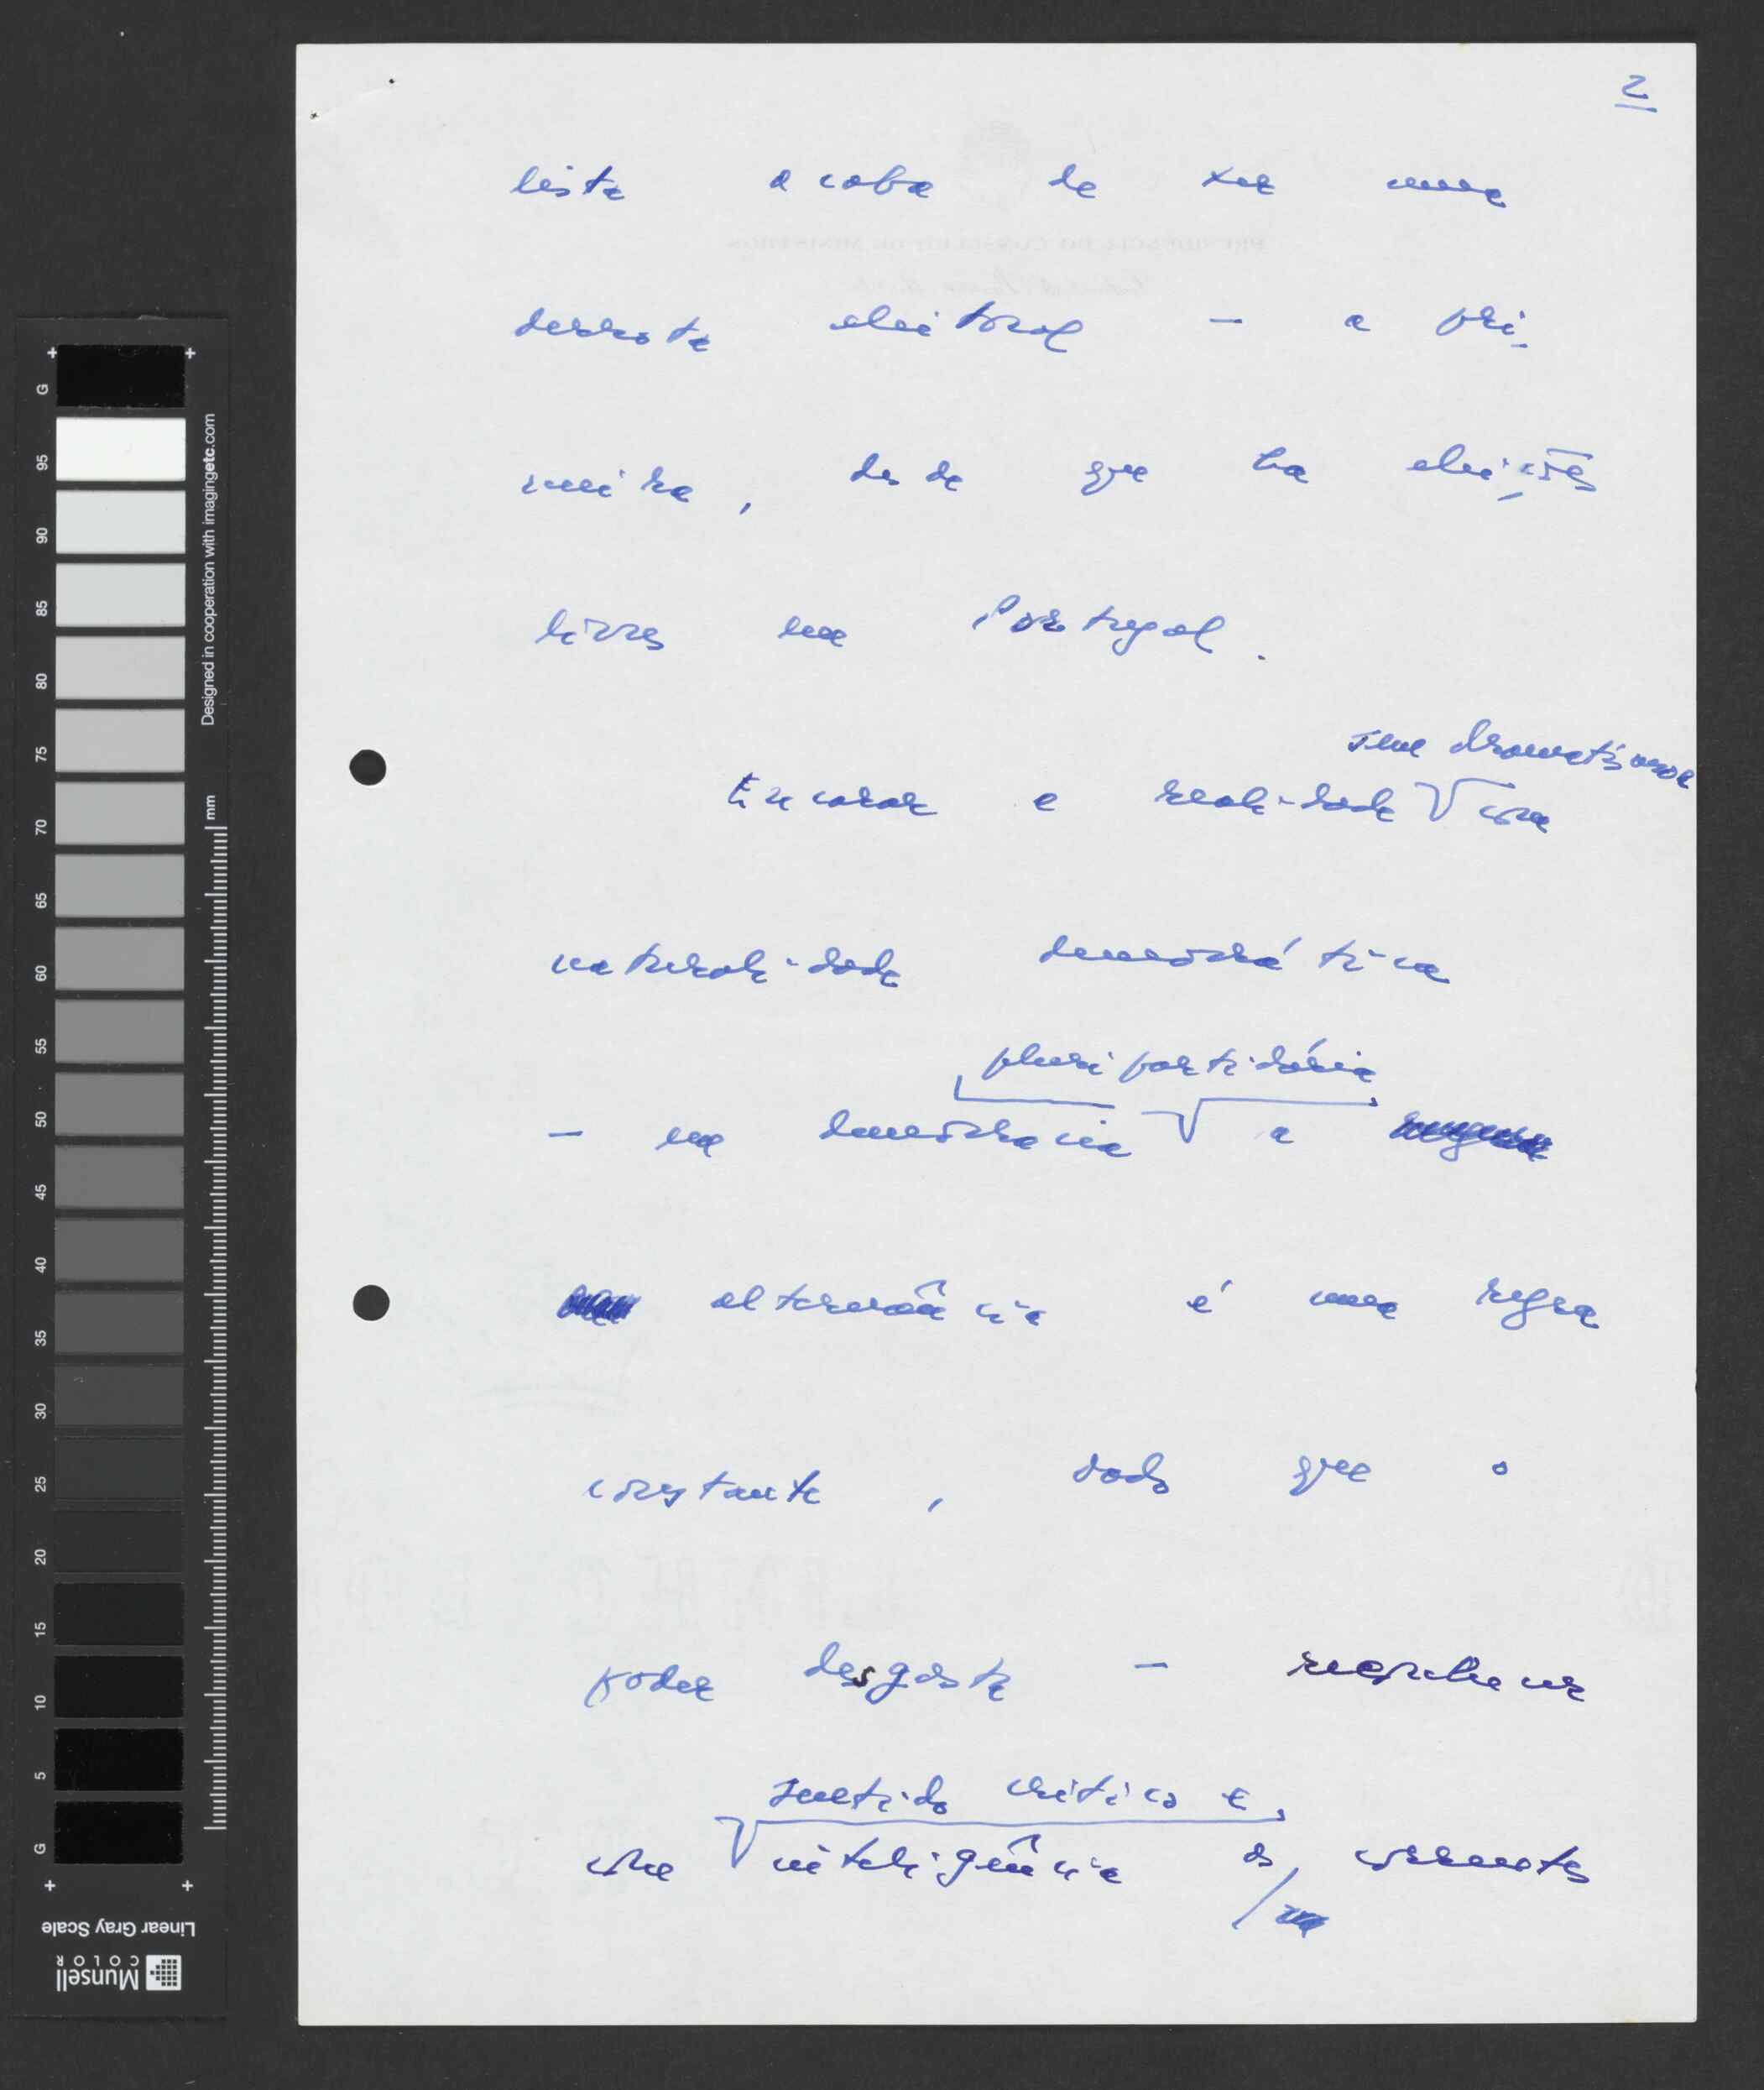 2
lista acaba de ter uma
derrota eleitoral — a pri-
meira, desde que há eleições
livres em Portugal.
sem dramatismo
Encarar a realidade com
naturalidade democrática
pluripartidária
— em democracia a
alternância é uma regra
constante, dado que o
poder desgasta —
sentido crítico e
com inteligência os
G
95
90
85
80
75
70
65
60
55
50
45
40
35
30
25
20
15
10
5
G
Designed in cooperation with imagingetc.com
mm
Linear Gray Scale
Munsell
COLOR